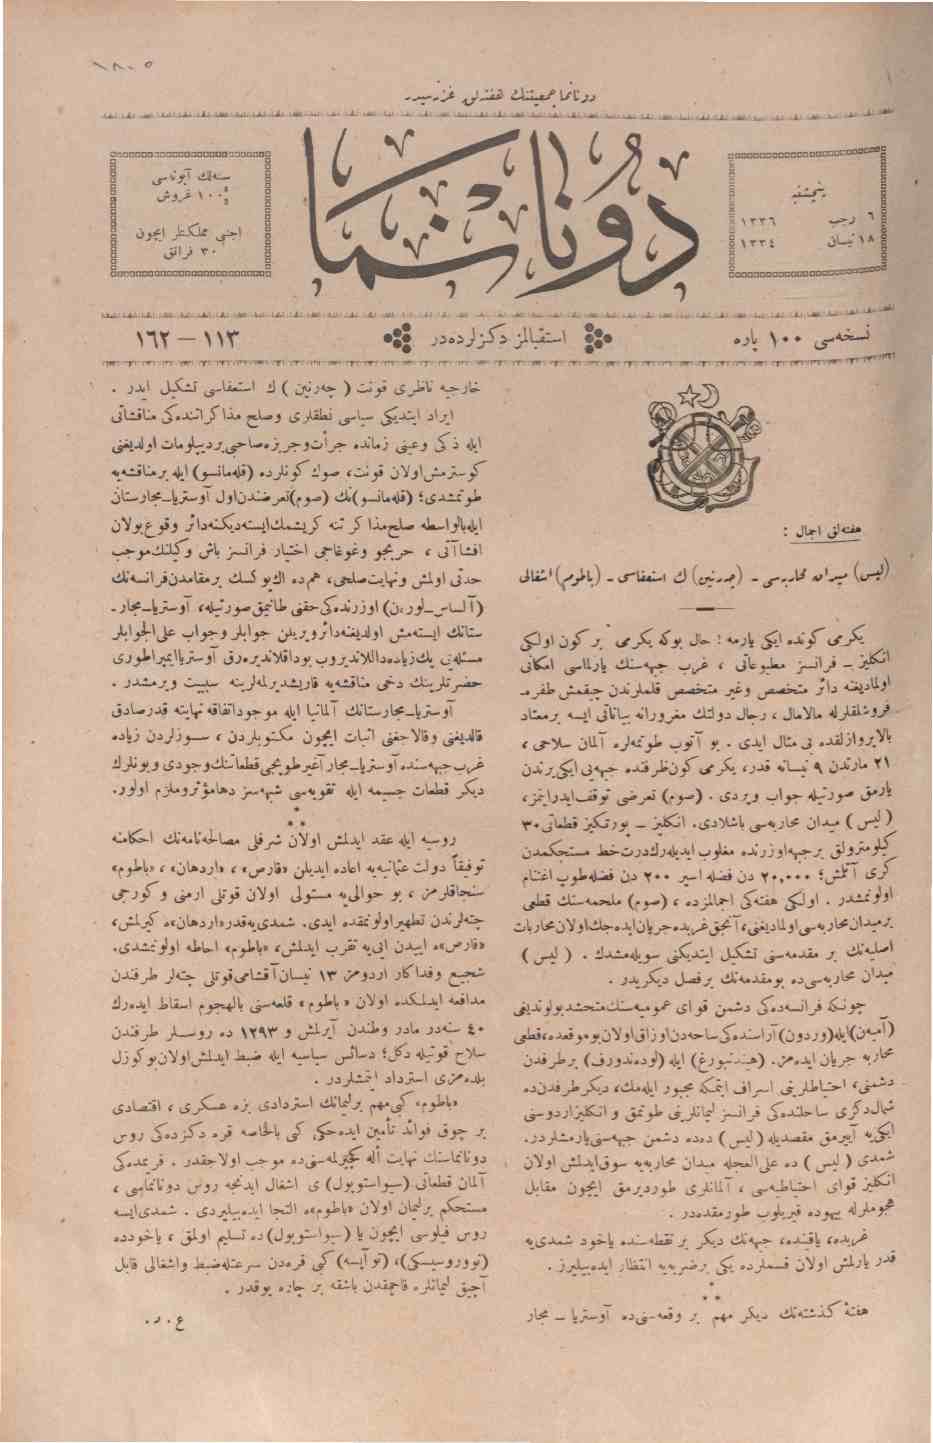 ١٨٠٥
دونانما جمعیتنك هفته‌لق غزته‌سیدر
سنه‌لك آبونه‌سی
١٠٠ غروش
اجنبی مملكتلر ایچون
٣٠ فرانق
دونانما
پنجشنبه
٦ رجب ١٣٣٦
١٨ نیسان ١٣٣٤
نسخه‌سی ١٠٠ پاره
استقبالمز دكزلرده‌در
١١٣ — ١٦٢
هفته‌لق اجمال :
(لیس) میدان محاربه‌سی ـ (چرنین) ك استعفاسی ـ (باطوم) اشغالی
یكرمی كونده ایكی یارمه ! حال بوكه یكرمی بر كون اولكی
انكلیز ـ فرانسز مطبوعاتی ، غرب جبهه‌سنك یارلماسی امكانی
اولمادیغنه دائر متخصص وغیر متخصص قلملرندن چیقمش طفره
فروشلقلرله مالامال ، رجال دولتك مغرورانه بیاناتی ایسه برمعتاد
بالاپروازلقده بی مثال ایدی . بو آتوب طوتمه‌لره آلمان سلاحی ،
٢١ مارتدن ٩ نیسانه قدر، یكرمی كون ظرفنده جبهه‌یی ایكی یردن
یارمق صورتیله جواب ویردی . (صوم) تعرضی توقف ایدر ایتمز،
(لیس) میدان محاربه‌سی باشلادی. انكلیز ـ پورتكیز قطعاتی ٣٠
كیلومترولق برجبهه اوزرنده مغلوب ایدیله‌رك درت خط مستحكمدن
كری آتلش؛ ٢٠,٠٠٠ دن فضله اسیر ٢٠٠ دن فضله طوپ اغتنام
اولونمشدر . اولكی هفته‌كی اجمالمزده ، (صوم) ملحمه‌سنك قطعی
برمیدان محاربه‌سی اولمادیغنی، آنجق غربده جریان ایده‌جك اولان محاربات
اصلیه‌نك بر مقدمه‌سنی تشكیل ایتدیكنی سویله‌مشدك . (لیس)
میدان محاربه‌سی‌ده بو مقدمه‌نك بر فصل دیكریدر .
چونكه فرانسه‌ده‌كی دشمن قوای عمومیه‌سنك متحشد بولوندیغی
(آمیه‌ن) ایله (وردون) آراسنده‌كی ساحه‌دن اوزاق اولان بو موقعده، قطعی
محاربه جریان ایده‌مز. (هیندنبورغ) ایله (لودندورف) بر طرفدن
دشمنی، احتیاطلرینی اسراف ایتمكه مجبور ایله‌مك، دیكر طرفدن ده
شمال دكزی ساحلنده‌كی فرانسز لیمانلرینی طوتمق و انكلیز اردوسنی
ایكی‌یه آییرمق مقصدیله (لیس) ده‌ده دشمن جبهه‌سنی یارمشلردر.
شمدی (لیس) ده علی‌العجله میدان محاربه‌یه سوق ایدلمش اولان
انكلیز قوای احتیاطیه‌سی ، آلمانلری طوردیرمق ایچون مقابل
هجوملرله بیهوده قیریلوب طورمقده‌در .
غربده، یاقینده، جبهه‌نك دیكر بر نقطه‌سنده یاخود شمدی‌یه
قدر یارلمش اولان قسملرده یكی بر ضربه‌یه انتظار ایده‌بیلیرز .
* *
هفتهٔ گذشته‌نك دیكر مهم بر وقعه‌سی‌ده آوستریا ـ مجار
خارجیه ناظری قونت (چه‌رنین) ك استعفاسی تشكیل ایدر .
ایراد ایتدیكی سیاسی نطقلری وصلح مذاكراتنده‌كی مناقشاتی
ایله ذكی وعینی زمانده جرأت وجربزه صاحبی بر دیپلومات اولدیغنی
كوسترمش اولان قونت، صوك كونلرده (قله‌مانسو) ایله بر مناقشه‌یه
طوتمشدی؛ (قله‌مانسو)نك (صوم) تعرضندن اول آوستریا ـ مجارستان
ایله بالواسطه صلح مذاكراتنه كریشمك ایسته‌دیكنه دائر وقوع بولان
افشاآتی ، حربجو وغوغاجی اختیار فرانسز باش وكیلنك موجب
حدتی اولمش ونهایت صلحی، هم‌ده اك یوكسك بر مقامدن فرانسه‌نك
(آلساس ـ لورەن) اوزرنده‌كی حقنی طانیمق صورتیله، آوستریا ـ مجار-
ستانك ایسته‌مش اولدیغنه دائر ویریلن جوابلر وجواب علی‌الجوابلر
مسئله‌یی پك زیاده داللاندیروب بوداقلاندیره‌رق آوستریا ایمپراطوری
حضرتلرینك دخی مناقشه‌یه قاریشدیرلمه‌لرینه سببیت ویرمشدر .
آوستریا ـ مجارستانك آلمانیا ایله موجود اتفاقه نهایته قدر صادق
قالدیغنی وقالاجغنی اثبات ایچون مكتوبلردن ، سوزلردن زیاده
غرب جبهه‌سنده آوستریا ـ مجار آغیر طوپجی قطعاتنك وجودی وبونلرك
دیكر قطعات جسیمه ایله تقویه‌سی شبهه‌سز دها مؤثر وملزم اولور.
* *
روسیه ایله عقد ایدلمش اولان شرفلی مصالحه‌نامه‌نك احكامنه
توفیقاً دولت عثمانیه‌یه اعاده ایدیلن «قارص» ، «اردهان» ، «باطوم»
سنجاقلرمز ، بو حوالی‌یه مستولی اولان قوتلی ارمنی و كورجی
چته‌لرندن تطهیر اولونمقده ایدی. شمدی‌یه قدر «اردهان»ه كیرلمش،
«قارص»ه ایپیدن اپی‌یه تقرب ایدلمش، «باطوم» احاطه اولونمشدی.
شجیع وفداكار اردومز ١٣ نیسان آقشامی قوتلی چته‌لر طرفندن
مدافعه ایدلمكده اولان «باطوم» قلعه‌سنی بالهجوم اسقاط ایده‌رك
٤٠ سنه‌در مادر وطندن آیرلمش و ١٢٩٣ ده روسلر طرفندن
سلاح قوتیله دكل؛ دسائس سیاسیه ایله ضبط ایدلمش اولان بو كوزل
بلده‌مزی استرداد ایتمشلردر .
«باطوم» كبی مهم بر لیمانك استردادی بزه عسكری ، اقتصادی
بر چوق فوائد تأمین ایده‌جكی كبی بالخاصه قره دكزده‌كی روس
دونانماسنك نهایت اله كچیرلمه‌سنی‌ده موجب اولاجقدر . قریمده‌كی
آلمان قطعاتی (سیواستوپول) ی اشغال ایدنجه روس دونانماسی ،
مستحكم بر لیمان اولان «باطوم»ه التجا ایده‌بیلیردی . شمدی ایسه
روس فیلوسی ایچون یا (سیواستوپول) ده تسلیم اولمق ، یاخودده
(نووروسیسكی)، (توآپسه) كبی قره‌دن سرعتله ضبط واشغالی قابل
آچیق لیمانلره قاچمقدن باشقه بر چاره یوقدر .
ع . ر .